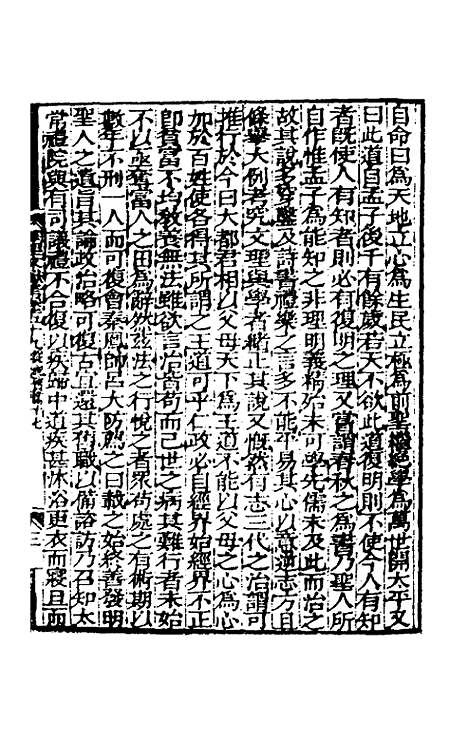 自命曰為天地立心為生民立極為前聖繼絕學為萬世開太平又
曰此道自孟子後千有餘歲若天不欲此道復明則不使今人有知
者既使人有知者則必有復明之理又嘗謂春秋之為書乃聖人所
自作惟孟子為能知之非理明義精殆未可學先儒未及此而治之
故其說多穿鑿及詩書禮樂之言多不能平易其心以意逆志方且
條舉大例考究文理與學者緒正其說又慨然有志三代之治謂可
推行於今曰大都君相以父母天下為王道不能以父母之心為心
加於百姓使各得其所謂之王道可乎仁政必自經界始經界不正
即貧富不均教養無法雖欲言治皆苟而已世之病其難行者未始
不以亟奪富人之田為辭然茲法之行悅之者衆苟處之有術期以
數年不刑一人而可復會秦鳳帥呂大防薦之曰載之始終善發明
聖人之遺旨其論政治略可復古宜還其舊職以備諮訪乃召知太
常禮院與有司議禮不合復以疾歸中道疾甚沐浴更衣而寢旦而